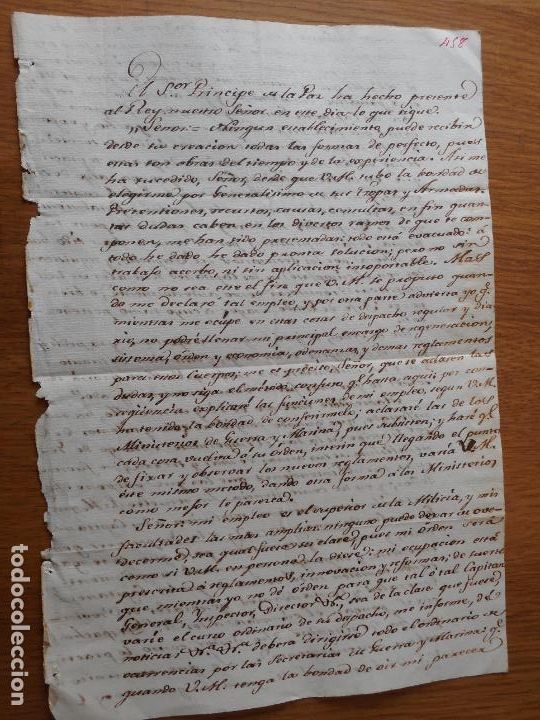 458
El S.or Principe de la Paz ha hecho presente
al Rey nuestro Señor en este dia lo que sigue.
"Señor: Ningun establecimiento puede recibir
desde su creacion todas las formas de perfecto, pues
estas son obras del tiempo y de la experiencia. Asi me
ha sucedido, Señor, desde que V.M. tubo la bondad de
elegirme por Generalisimo de sus Tropas y Armadas.
Pretensiones, recursos, causas, consultas, en fin quan-
tas dudas caben en los diversos ramos de que se com-
ponen, me han sido presentadas: todo está evacuado: á
todo he dado, he dado pronta solucion; pero no sin
trabajo acerbo, ni sin aplicacion insoportable. Mas
como no sea este el fin que V.M. se propuso quan-
do me declaró tal empleo, y por otra parte advierto yo q.e
mientras me ocupe en estas cosas de despacho regular y dia-
rio, no podré llenar mi principal encargo de regeneracion,
sistema, orden y economía, ordenanzas, y demas reglamentos
para estos Cuerpos, me es preciso, Señor, que se aclaren las
dudas, y no siga el método confuso q.e hasta aqui: por con-
seqüencia explicaré las funciones de mi empleo, segun V.M.
ha tenido la bondad de conferirmelo; aclararé las de los
Ministerios de Guerra y Marina, pues subsisten; y haré q.e
cada cosa vuelva á su orden, interin que llegando el punto
de fixar y observar los nuevos reglamentos, varía V.M.
este mismo método, dando otra forma á los Ministerios
como mejor le parezca.
Señor: mi empleo es el superior de la Milicia, y mis
facultades las mas amplias: ninguno puede dexar de ove-
decerme, sea qual fuera su clase, pues mi orden será
como si V.M. en persona la diese: mi ocupacion está
prescrita á reglamentos, innovacion y reformas; de suerte
que mientras yo no dé orden para que tal ó tal Capitan
General, Inspector, Director &.a, sea de la clase que fuere,
varíe el curso ordinario de su despacho, me informe, dé
noticia, &.a &.a deberá dirigirse todo el ordinario de
ocurrencias por las Secretarias de Guerra y Marina; y
quando V.M. tenga la bondad de oir mi parecer
todocoleccion.net